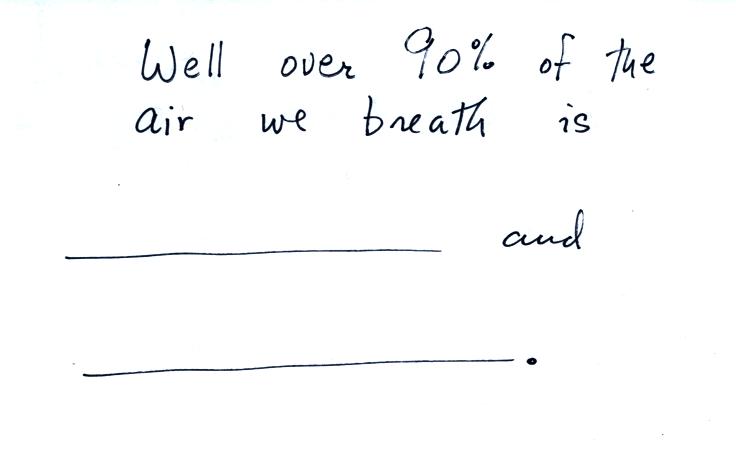 Well over 90% of the
air we breath is
__________ and
__________.